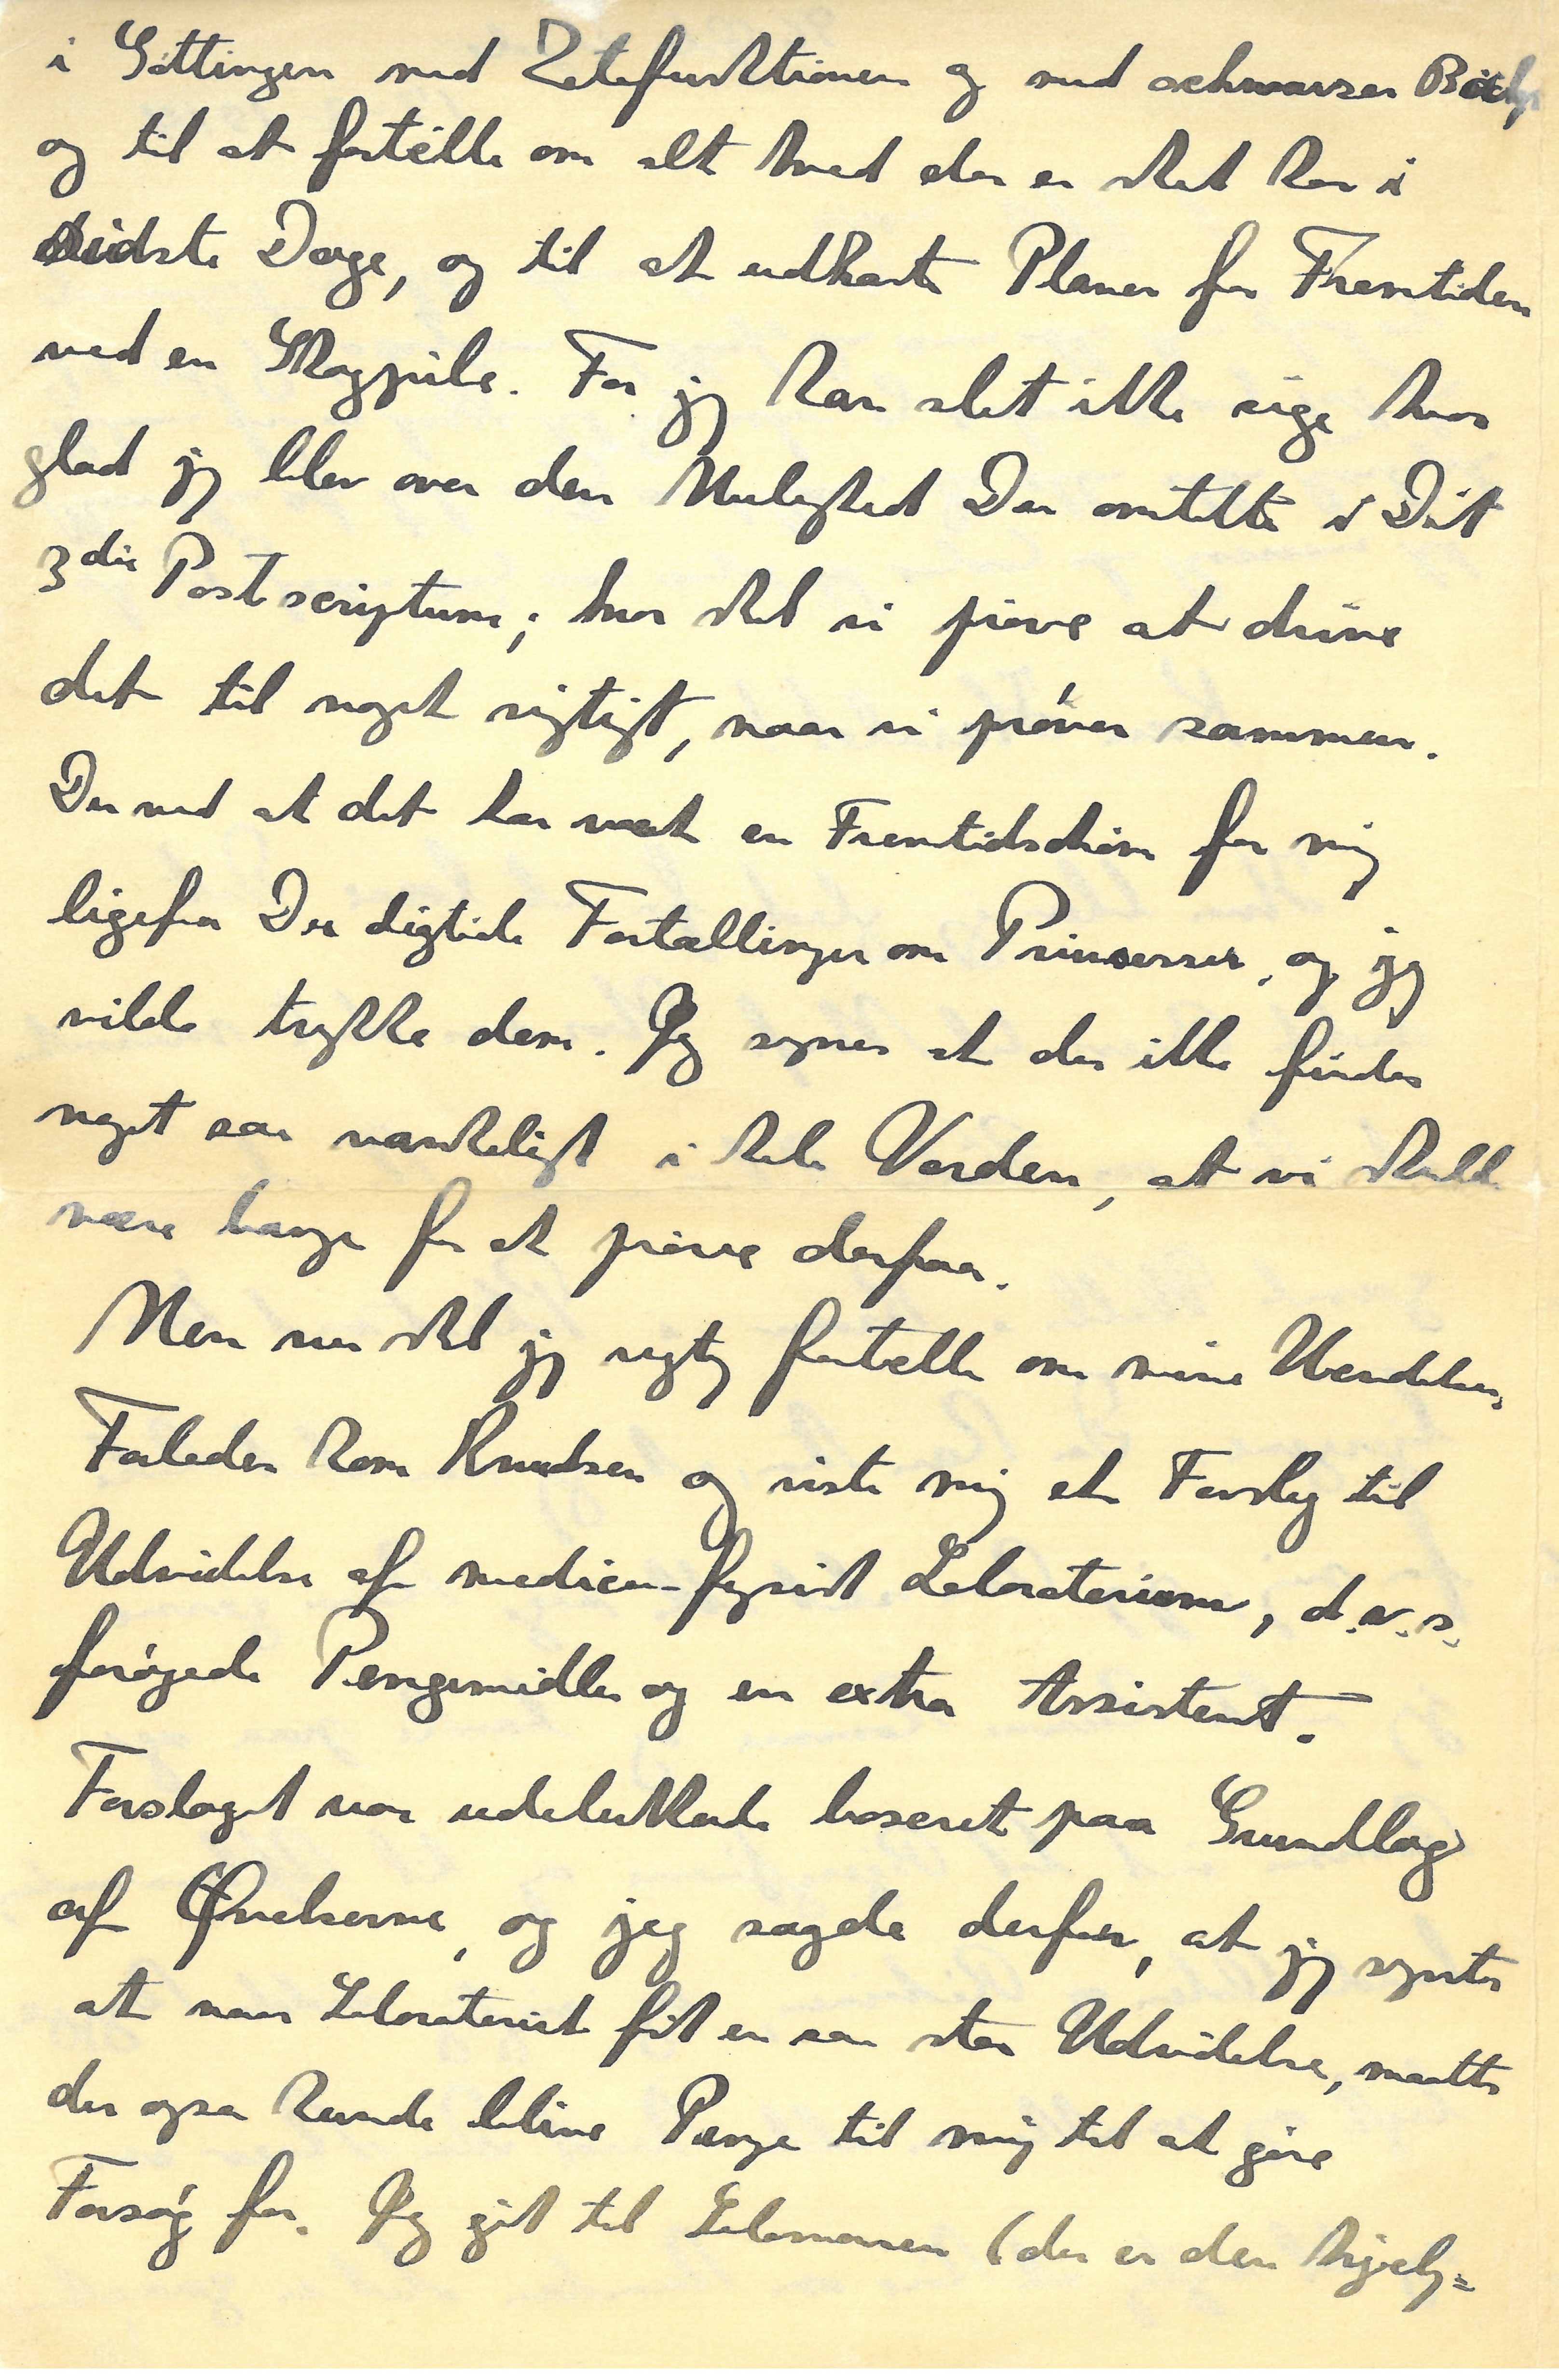 i Göttingen med Zetafunktionen og med schwarzer Bær
og til at fortælle om alt hvad der er sket her i
sidste Dage, og til at udkaste Planer for Fremtiden
ved en Skagpibe. For jeg kan slet ikke sige hvor
glad jeg blev over den Mulighed Du omtalte i Dit
3die Postscriptum; hvor skal vi prøve at drive
det til noget rigtigt, naar vi prøver sammen.
Du ved at det har været en Fremtidsdrøm for mig
ligefra Du digtede Fortællinger om Prinsesser, og jeg
vilde trykke dem. Jeg synes at der ikke findes
noget saa vanskeligt i hele Verden, at vi skulde
være bange for at prøve derpaa.
Men nu skal jeg rigtig fortælle om mine Hændelser,
Forleden kom Knudsen og viste mig et Forslag til
Udvidelse af medicin-fysisk Laboratorium, d.v.s.
forøgede Pengemidler og en extra Assistent.
Forslaget var udelukkende baseret paa Grundlag
af Øvelserne, og jeg sagde derfor, at jeg syntes
at naar Laboratoriet fik en saa stor Udvidelse, maatte
der ogsaa kunde blive Penge til mig til at gøre
Forsøg for. Jeg gik til Salomonsen (der er den hyggelig=